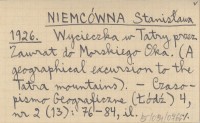 NIEMCÓWNA Stanisława
1926. Wycieczka w Tatry przez
Zawrat do Morskiego Oka. (A
geographical excursion to the
Tatra mountains). - Czaso-
pismo Geograficzne (Łódź) 4,
nr 2 (13): 76-84, il.